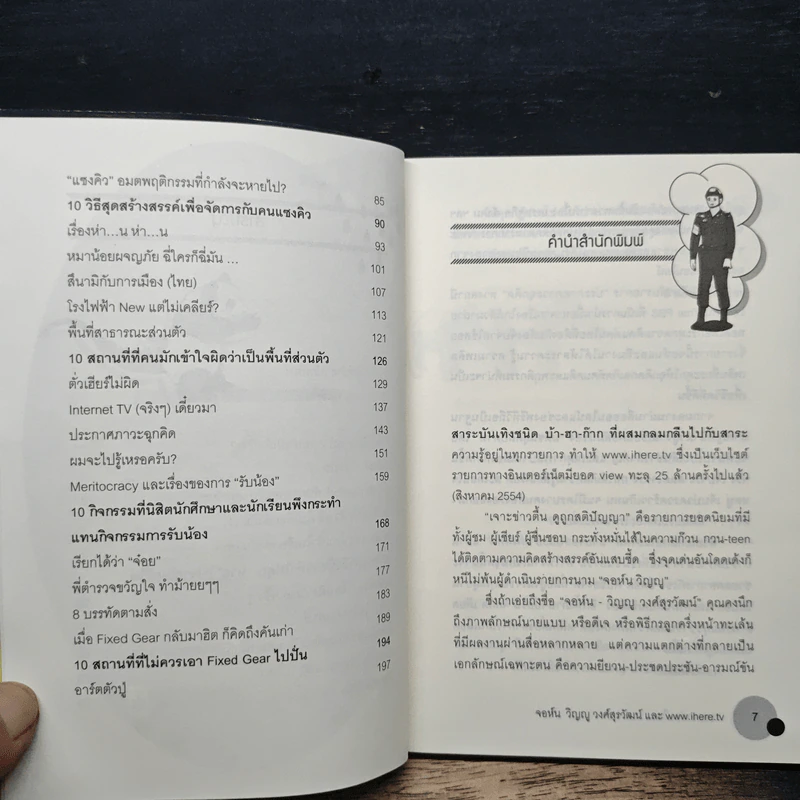 “แซงคิว” อมตพฤติกรรมที่กำลังจะหายไป? 85
10 วิธีสุดสร้างสรรค์เพื่อจัดการกับคนแซงคิว 90
เรื่องห่า...น ห่า...น 93
หมาน้อยผจญภัย ฉี่ใครก็ฉี่มัน ... 101
สึนามิกับการเมือง (ไทย) 107
โรงไฟฟ้า New แต่ไม่เคลียร์? 113
พื้นที่สาธารณะส่วนตัว 121
10 สถานที่ที่คนมักเข้าใจผิดว่าเป็นพื้นที่ส่วนตัว 126
ตั่วเฮียร์ไม่ผิด 129
Internet TV (จริงๆ) เดี๋ยวมา 137
ประกาศภาวะฉุกคิด 143
ผมจะไปรู้เหรอครับ? 151
Meritocracy และเรื่องของการ “รับน้อง” 159
10 กิจกรรมที่นิสิตนักศึกษาและนักเรียนพึงกระทำ
แทนกิจกรรมการรับน้อง 168
เรียกได้ว่า “จ๋อย” 171
พี่ตำรวจขวัญใจ ทำม้ายยๆๆ 177
8 บรรทัดตามสั่ง 183
เมื่อ Fixed Gear กลับมาฮิต ก็คิดถึงคันเก่า 189
10 สถานที่ที่ไม่ควรเอา Fixed Gear ไปปั่น 194
อาร์ตตัวปู่ 197
คำนำสำนักพิมพ์
สาระบันเทิงชนิด บ้า-ฮา-ก๊าก ที่ผสมกลมกลืนไปกับสาระ
ความรู้อยู่ในทุกรายการ ทำให้ www.ihere.tv ซึ่งเป็นเว็บไซต์
รายการทางอินเตอร์เน็ตมียอด view ทะลุ 25 ล้านครั้งไปแล้ว
(สิงหาคม 2554)
“เจาะข่าวตื้น ดูถูกสติปัญญา” คือรายการยอดนิยมที่มี
ทั้งผู้ชม ผู้เชียร์ ผู้ชื่นชอบ กระทั่งหมั่นไส้ในความก๊วน กวน-teen
ได้ติดตามความคิดสร้างสรรค์อันแสบซี้ด ซึ่งจุดเด่นอันโดดเด้งก็
หนีไม่พ้นผู้ดำเนินรายการนาม “จอห์น วิญญู”
ซึ่งถ้าเอ่ยถึงชื่อ “จอห์น - วิญญู วงศ์สุรวัฒน์” คุณคงนึก
ถึงภาพลักษณ์นายแบบ หรือดีเจ หรือพิธีกรลูกครึ่งหน้าทะเล้น
ที่มีผลงานผ่านสื่อหลากหลาย แต่ความแตกต่างที่กลายเป็น
เอกลักษณ์เฉพาะตน คือความยียวน-ประชดประชัน-อารมณ์ขัน
จอห์น วิญญู วงศ์สุรวัฒน์ และ www.ihere.tv 7